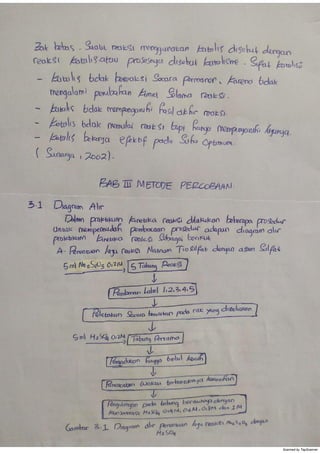 Zak bebas. Suatu reaksi menggunakan katalis disebut dengan
reaksi katalis atau prosesnya disebut katalisme. Sifat katalis:
- Katalis tidak bereaksi secara permanen, karena tidak
mengalami perubahan kimia selama reaksi.
- Katalis tidak mempengaruhi hasil akhir reaksi.
- Katalis tidak memulai reaksi tapi hanya mempengaruhi lajunya.
- Katalis bekerja efektif pada suhu optimum.
(Sunarya, 2002).
BAB III METODE PERCOBAAN
3.1 Diagram Alir
Dalam praktikum kinetika reaksi dilakukan beberapa prosedur
untuk mempermudah pembacaan prosedur adapun diagram alir
praktikum kinetika reaksi sebagai berikut
A. Penentuan laju reaksi Natrium Tiosulfat dengan asam Sulfat
5 ml Na2S2O3 0.2M, 5 Tabung Reaksi
Pemberian Label 1,2,3,4,5
Peletakan secara berurutan pada rak yang disediakan
5 ml H2SO4 0.2M, Tabung Pertama
Pengadukan hingga betul keruh
Pencatatan waktu terbentuknya kekeruhan
Pengulangan pada tabung berikutnya dengan
Konsentrasi H2SO4 0.4M, 0.6M, 0.8M dan 1M
Gambar 3.1 Diagram alir penentuan laju reaksi Na2S2O3 dengan
H2SO4
Scanned by TapScanner